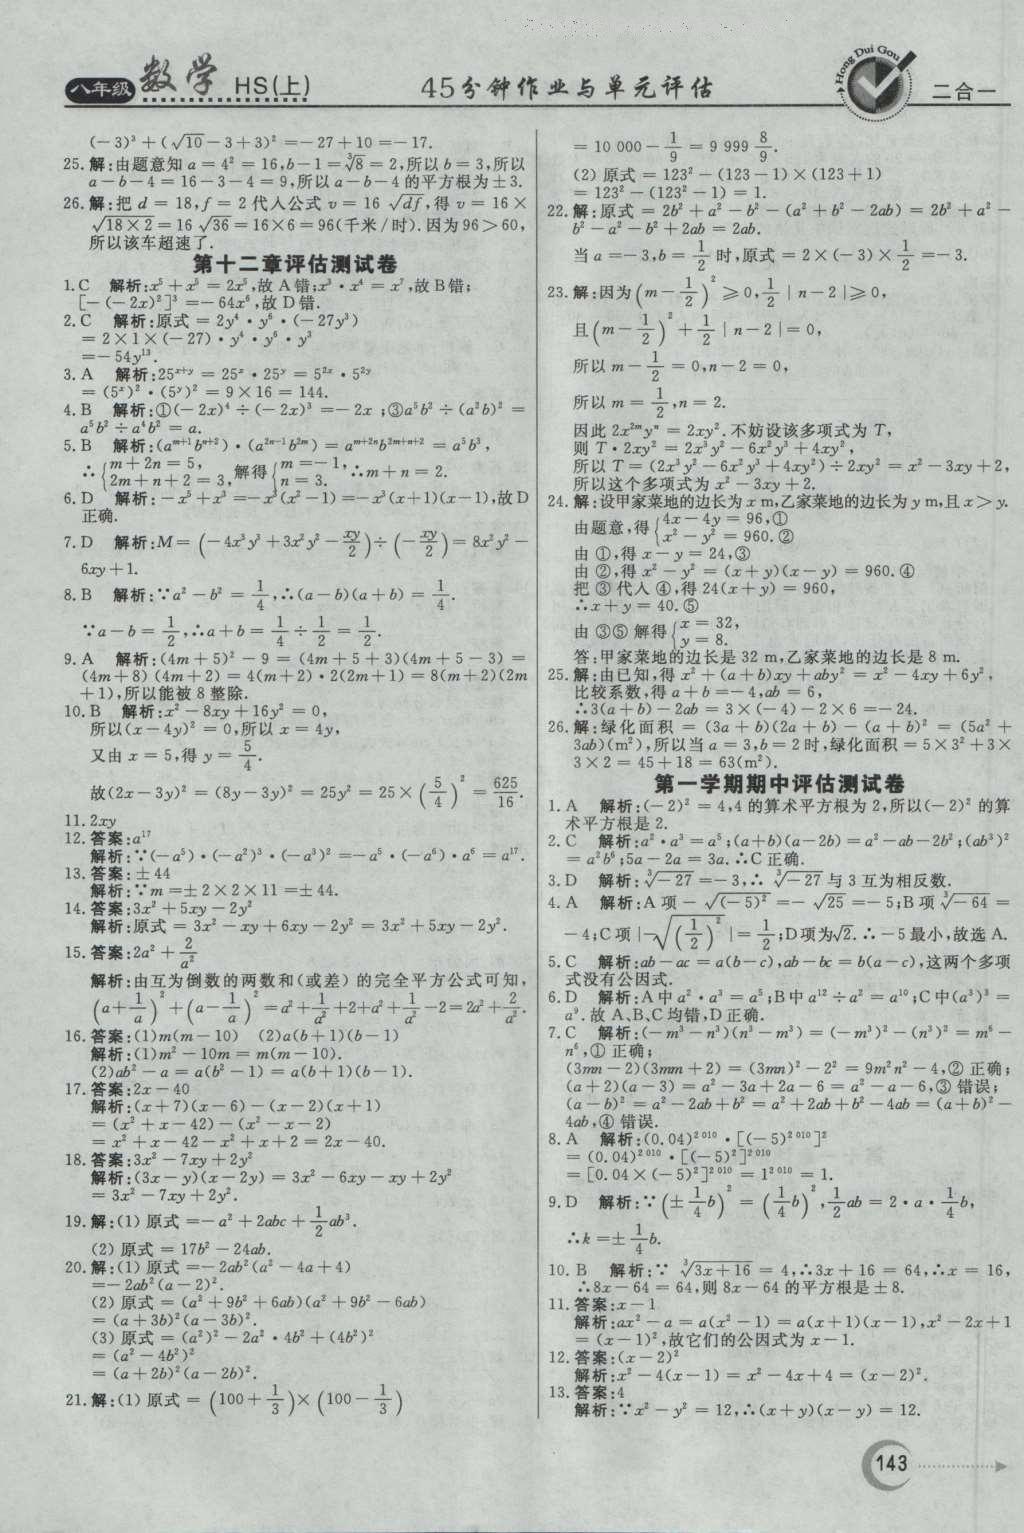 八年级 数学 HS(上) 45分钟作业与单元评估 Hong Dui Gou 二合一
(-3)³+(√10-3+3)²=-27+10=-17.
25.解:由题意知a=4²=16,b-1=∛8=2,所以b=3,所以
a-b-4=16-3-4=9,所以a-b-4的平方根为±3.
26.解:把d=18,f=2代人公式v=16√df,得v=16×
√18×2=16√36=16×6=96(千米/时).因为96>60,
所以该车超速了.
第十二章评估测试卷
1.C 解析:x⁵+x⁵=2x⁵,故A错;x³·x⁴=x⁷,故B错;
[-(-2x)²]³=-64x⁶,故D错.
2.C 解析:原式=2y⁴·y⁶·(-27y³)
=2×1×(-27)·y⁴·y⁶·y³
=-54y¹³.
3.A 解析:25ˣ⁺ʸ=25ˣ·25ʸ=5²ˣ·5²ʸ
=(5ˣ)²·(5ʸ)²=9×16=144.
4.B 解析:①(-2x)⁴÷(-2x)³=-2x;③a⁵b²÷(a²b)²=
a⁵b²÷a⁴b²=a.
5.B 解析:(aᵐ⁺¹bⁿ⁺²)·(a²ⁿ⁻¹b²ᵐ)=aᵐ⁺²ⁿb²ᵐ⁺ⁿ⁺²=a⁵b³,
∴{m+2n=5, 2m+n+2=3,解得{m=-1, n=3.∴m+n=2.
6.D 解析:-x⁵+x³=-x³(x²-1)=-x³(x+1)(x-1),故D
正确.
7.D 解析:M=(-4x³y³+3x²y²-xy/2)÷(-xy/2)=8x²y²-
6xy+1.
8.B 解析:∵a²-b²=1/4,∴(a-b)(a+b)=1/4.
∵a-b=1/2,∴a+b=1/4÷1/2=1/2.
9.A 解析:(4m+5)²-9=(4m+5+3)(4m+5-3)=
(4m+8)(4m+2)=4(m+2)·2(2m+1)=8(m+2)(2m
+1),所以能被8整除.
10.B 解析:x²-8xy+16y²=0,
所以(x-4y)²=0,所以x=4y,
又由x=5,得y=5/4.
故(2x-3y)²=(8y-3y)²=25y²=25×(5/4)²=625/16.
11.2xy
12.答案:a¹⁷
解析:∵(-a⁵)·(-a²)³·(-a³)²=-a⁵·(-a⁶)·a⁶=a¹⁷.
13.答案:±44
解析:∵m=±2×2×11=±44.
14.答案:3x²+5xy-2y²
解析:原式=3x²-xy+6xy-2y²=3x²+5xy-2y².
15.答案:2a²+2/a²
解析:由互为倒数的两数和(或差)的完全平方公式可知,
(a+1/a)²+(a-1/a)²=a²+1/a²+2+a²+1/a²-2=2a²+2/a².
16.答案:(1)m(m-10) (2)a(b+1)(b-1)
解析:(1)m²-10m=m(m-10).
(2)ab²-a=a(b²-1)=a(b+1)(b-1).
17.答案:2x-40
解析:(x+7)(x-6)-(x-2)(x+1)
=(x²+x-42)-(x²-x-2)
=x²+x-42-x²+x+2=2x-40.
18.答案:3x²-7xy+2y²
解析:(3x-y)(x-2y)=3x²-6xy-xy+2y²
=3x²-7xy+2y².
19.解:(1)原式=-a²+2abc+1/2ab³.
(2)原式=17b²-24ab.
20.解:(1)原式=-2ab²(a²-4a+4)
=-2ab²(a-2)².
(2)原式=(a²+9b²+6ab)(a²+9b²-6ab)
=(a+3b)²(a-3b)².
(3)原式=(a²)²-2a²·4b²+(4b²)²
=(a²-4b²)²
=(a+2b)²(a-2b)².
21.解:(1)原式=(100+1/3)×(100-1/3)
=10 000-1/9=9 999 8/9.
(2)原式=123²-(123-1)×(123+1)
=123²-(123²-1)=1.
22.解:原式=2b²+a²-b²-(a²+b²-2ab)=2b²+a²-
b²-a²-b²+2ab=2ab.
当a=-3,b=1/2时,原式=2×(-3)×1/2=-3.
23.解:因为(m-1/2)²≥0,1/2|n-2|≥0,
且(m-1/2)²+1/2|n-2|=0,
所以m-1/2=0,n-2=0,
所以m=1/2,n=2.
因此2x²ᵐyⁿ=2xy².不妨设该多项式为T,
则T·2xy²=2x³y²-6x²y³+4xy²,
所以T=(2x³y²-6x²y³+4xy²)÷2xy²=x²-3xy+2,
所以这个多项式为x²-3xy+2.
24.解:设甲家菜地的边长为x m,乙家菜地的边长为y m,且x>y.
由题意,得{4x-4y=96,① x²-y²=960.②
由①,得x-y=24,③
由②,得x²-y²=(x+y)(x-y)=960.④
把③代人④,得24(x+y)=960,
∴x+y=40.⑤
由③⑤解得{x=32, y=8.
答:甲家菜地的边长是32 m,乙家菜地的边长是8 m.
25.解:由已知,得x²+(a+b)xy+aby²=x²-4xy+6y²,
比较系数,得a+b=-4,ab=6,
∴3(a+b)-2ab=3×(-4)-2×6=-24.
26.解:绿化面积=(3a+b)(2a+b)-(a+b)²=(5a²+
3ab)(m²),所以当a=3,b=2时,绿化面积=5×3²+3×
3×2=45+18=63(m²).
第一学期期中评估测试卷
1.A 解析:(-2)²=4,4的算术平方根为2,所以(-2)²的算
术平方根是2.
2.C 解析:a²·a³=a⁵;(a+b)(a-2b)=a²-ab-2b²;(ab³)²
=a²b⁶;5a-2a=3a.∴C正确.
3.D 解析:∛-27=-3,∴∛-27与3互为相反数.
4.A 解析:A项-√(-5)²=-√25=-5;B项∛-64=
-4;C项|-√(1/2)²|=1/2;D项为√2.∴-5最小,故选A.
5.C 解析:ab-ac=a(b-c),ab-bc=b(a-c),这两个多项
式没有公因式.
6.D 解析:A中a²·a³=a⁵;B中a¹²÷a²=a¹⁰;C中(a³)³=
a⁹.故A、B、C均错,D正确.
7.C 解析:(-m³-n³)(n³-m³)=(-m³)²-(n³)²=m⁶-
n⁶,①正确;
(3mn-2)(3mn+2)=(3mn)²-2²=9m²n²-4,②正确;
(a+2)(a-3)=a²-3a+2a-6=a²-a-6,③错误;
(a-b)²=a²-2ab+b²=a²+2ab+b²-4ab=(a+b)²-
4ab,④错误.
8.A 解析:(0.04)²⁰¹⁰·[(-5)²⁰¹⁰]²
=(0.04)²⁰¹⁰·[(-5)²]²⁰¹⁰
=[0.04×(-5)²]²⁰¹⁰=1²⁰¹⁰=1.
9.D 解析:∵(±1/4b)²=(1/4b)²,1/2ab=2·a·1/4b,
∴k=±1/4b.
10.B 解析:∵∛3x+16=4,∴3x+16=64,∴x=16,
∴8x-64=64,则8x-64的平方根是±8.
11.答案:x-1
解析:ax²-a=a(x²-1)=a(x+1)(x-1),x²-2x+1
=(x-1)²,故它们的公因式为x-1.
12.答案:(x-2)²
解析:x²-4(x-1)=x²-4x+4=(x-2)².
13.答案:4
解析:∵x²-y²=12,∴(x+y)(x-y)=12.
143